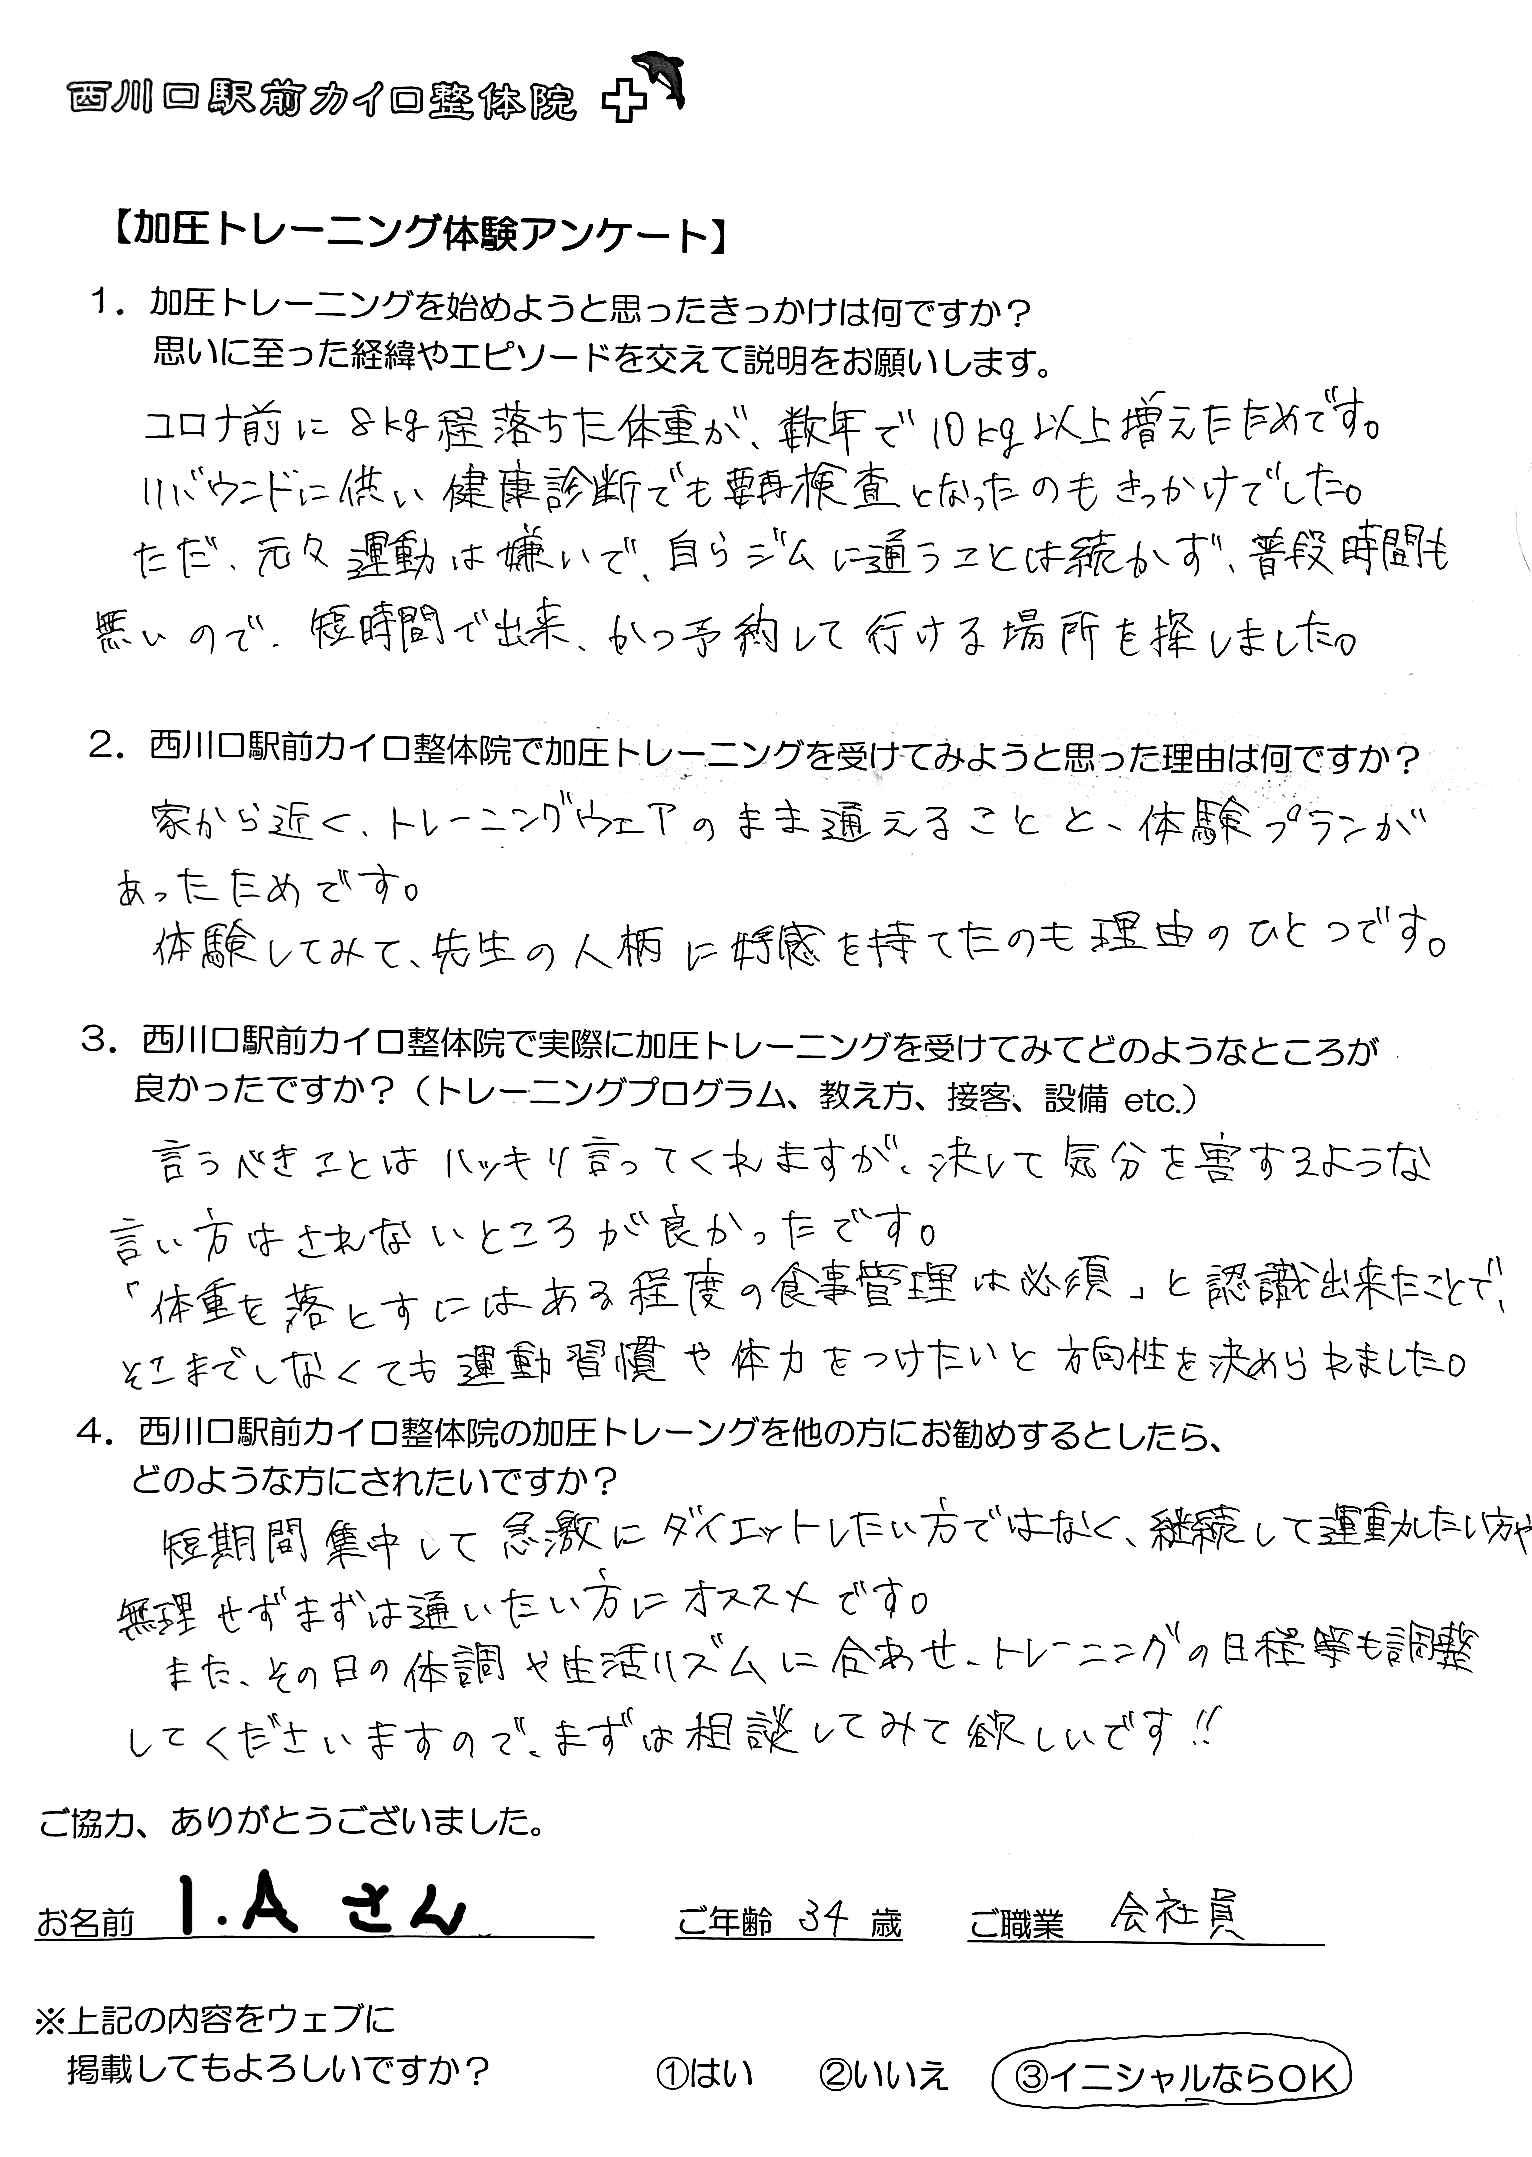 西川口駅前カイロ整体院
【加圧トレーニング体験アンケート】
1．加圧トレーニングを始めようと思ったきっかけは何ですか？
思いに至った経緯やエピソードを交えて説明をお願いします。
コロナ前に8kg程落ちた体重が、数年で10kg以上増えたためです。
リバウンドに供い健康診断でも要再検査となったのもきっかけでした。
ただ、元々運動は嫌いで、自らジムに通うことは続かず、普段時間も
無いので、短時間で出来、かつ予約して行ける場所を探しました。
2．西川口駅前カイロ整体院で加圧トレーニングを受けてみようと思った理由は何ですか？
家から近く、トレーニングウェアのまま通えることと、体験プランが
あったためです。
体験してみて、先生の人柄に好感を持てたのも理由のひとつです。
3．西川口駅前カイロ整体院で実際に加圧トレーニングを受けてみてどのようなところが
良かったですか？（トレーニングプログラム、教え方、接客、設備 etc.）
言うべきことはハッキリ言ってくれますが、決して気分を害するような
言い方はされないところが良かったです。
「体重を落とすにはある程度の食事管理は必須」と認識出来たことで、
そこまでしなくても運動習慣や体力をつけたいと方向性を決められました。
4．西川口駅前カイロ整体院の加圧トレーングを他の方にお勧めするとしたら、
どのような方にされたいですか？
短期間集中して急激にダイエットしたい方ではなく、継続して運動したい方や
無理せずまずは通いたい方にオススメです。
また、その日の体調や生活リズムに合わせ、トレーニングの日程等も調整
してくださいますので、まずは相談してみて欲しいです!!
ご協力、ありがとうございました。
お名前 I.A さん ご年齢 34 歳 ご職業 会社員
※上記の内容をウェブに
掲載してもよろしいですか？ ①はい ②いいえ ③イニシャルならOK